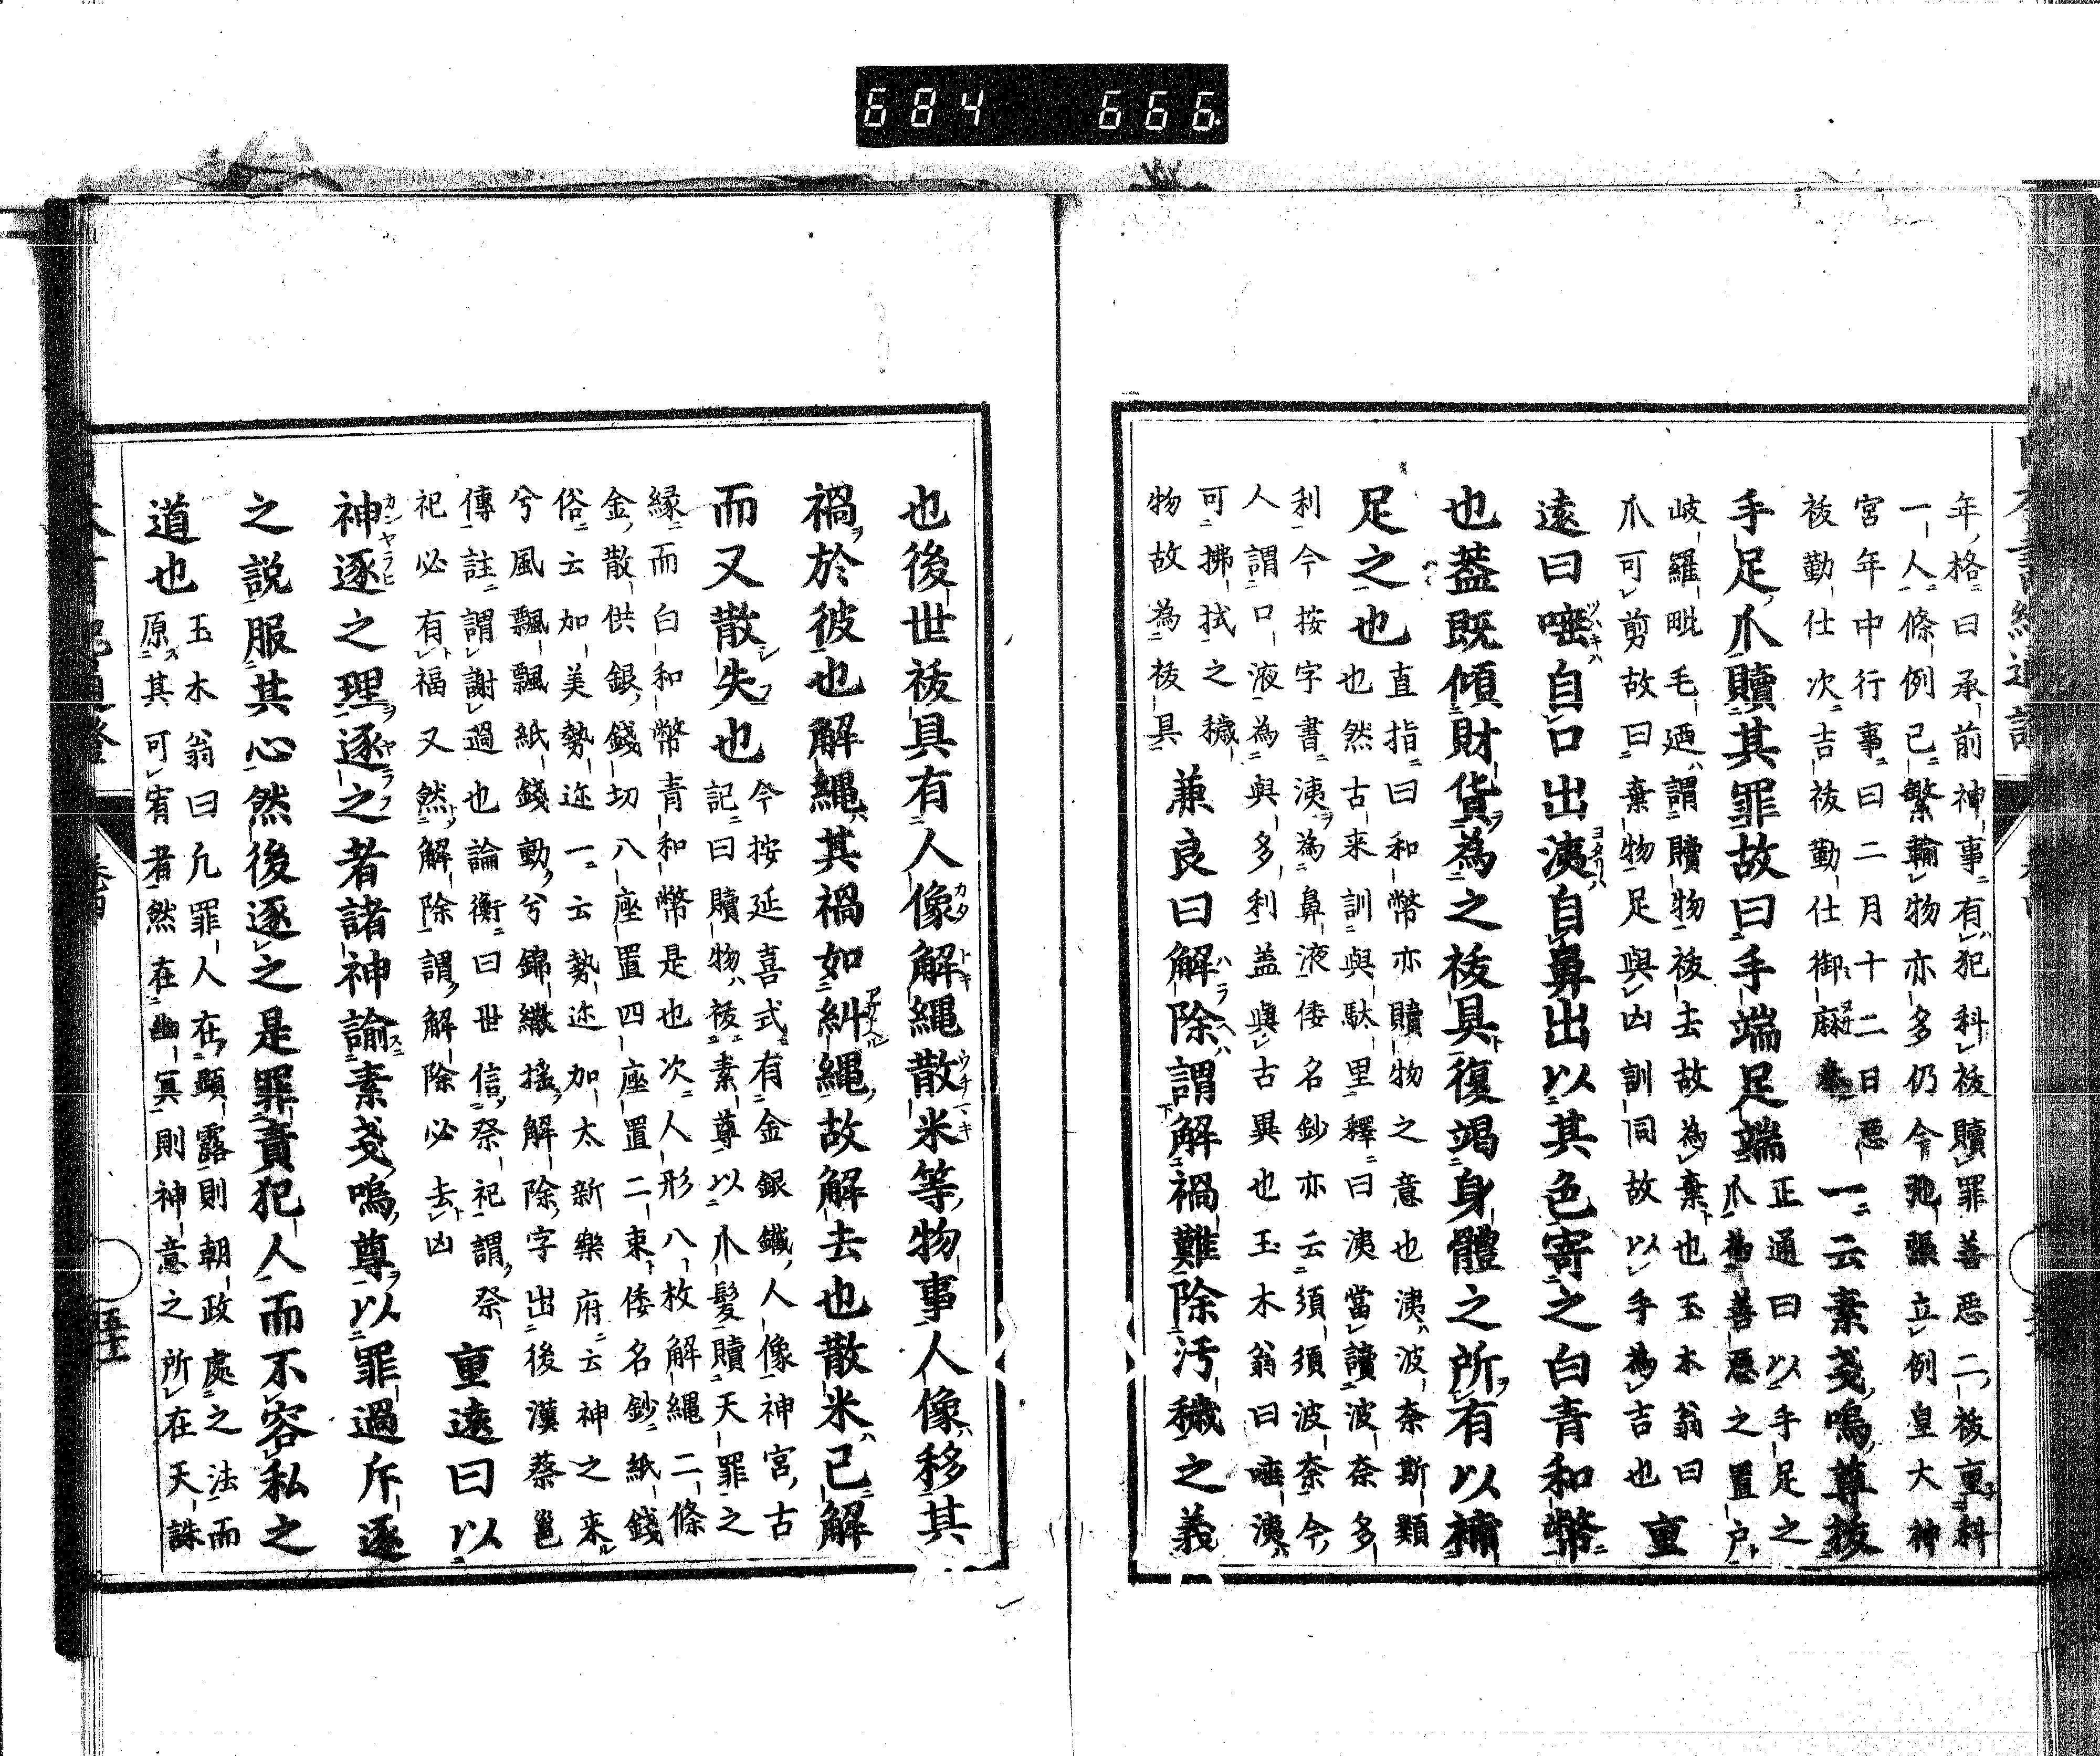 684 666
年格曰承前神事有犯科祓贖罪善惡二祓重科
一人條例已繁輸物亦多仍今弛張立例皇大神
宮年中行事曰二月十二日惡
祓勤仕次吉祓勤仕御麻
一云素戔嗚尊祓
手足爪贖其罪故曰手端足端
正通曰以手足之
爪為善惡之置戸
岐羅毗毛廼謂贖物祓去故為棄也玉木翁曰
爪可剪故曰棄物足與凶訓同故以手為吉也
重
遠曰唾自口出洟自鼻出以其色寄之白青和幣
也蓋既傾財貨為之祓具復竭身體之所有以補
足之也
直指曰和幣亦贖物之意也洟波奈斯類
也然古来訓與馱里釋曰洟當讀波奈多
利今按字書洟為鼻液倭名鈔亦云須須波奈今
人謂口液為與多利盖與古異也玉木翁曰唾洟
可拂拭之穢
物故為祓具
兼良曰解除謂解禍難除汚穢之義
也後世祓具有人像解繩散米等物事人像移其
禍於彼也解繩其禍如糾繩故解去也散米已解
而又散失也
今按延喜式有金銀鐵人像神宮古
記曰贖物祓素尊以爪髮贖天罪之
縁而白和幣青和幣是也次人形八枚解繩二條
金散供銀錢切八座置四座置二束倭名鈔紙錢
俗云加美勢迩一云勢迩加太新樂府云神之来
兮風飄飄紙錢動兮錦繖揺解除字出後漢蔡邕
傳註謂謝過也論衡曰世信祭祀謂祭
祀必有福又然解除謂解除必去凶
重遠曰以
神逐之理逐之者諸神諭素戔嗚尊以罪過斥逐
之説服其心然後逐之是罪責犯人而不容私之
道也
玉木翁曰凢罪人在顯露則朝政處之法而
原其可宥者然在幽冥則神意之所在天誅